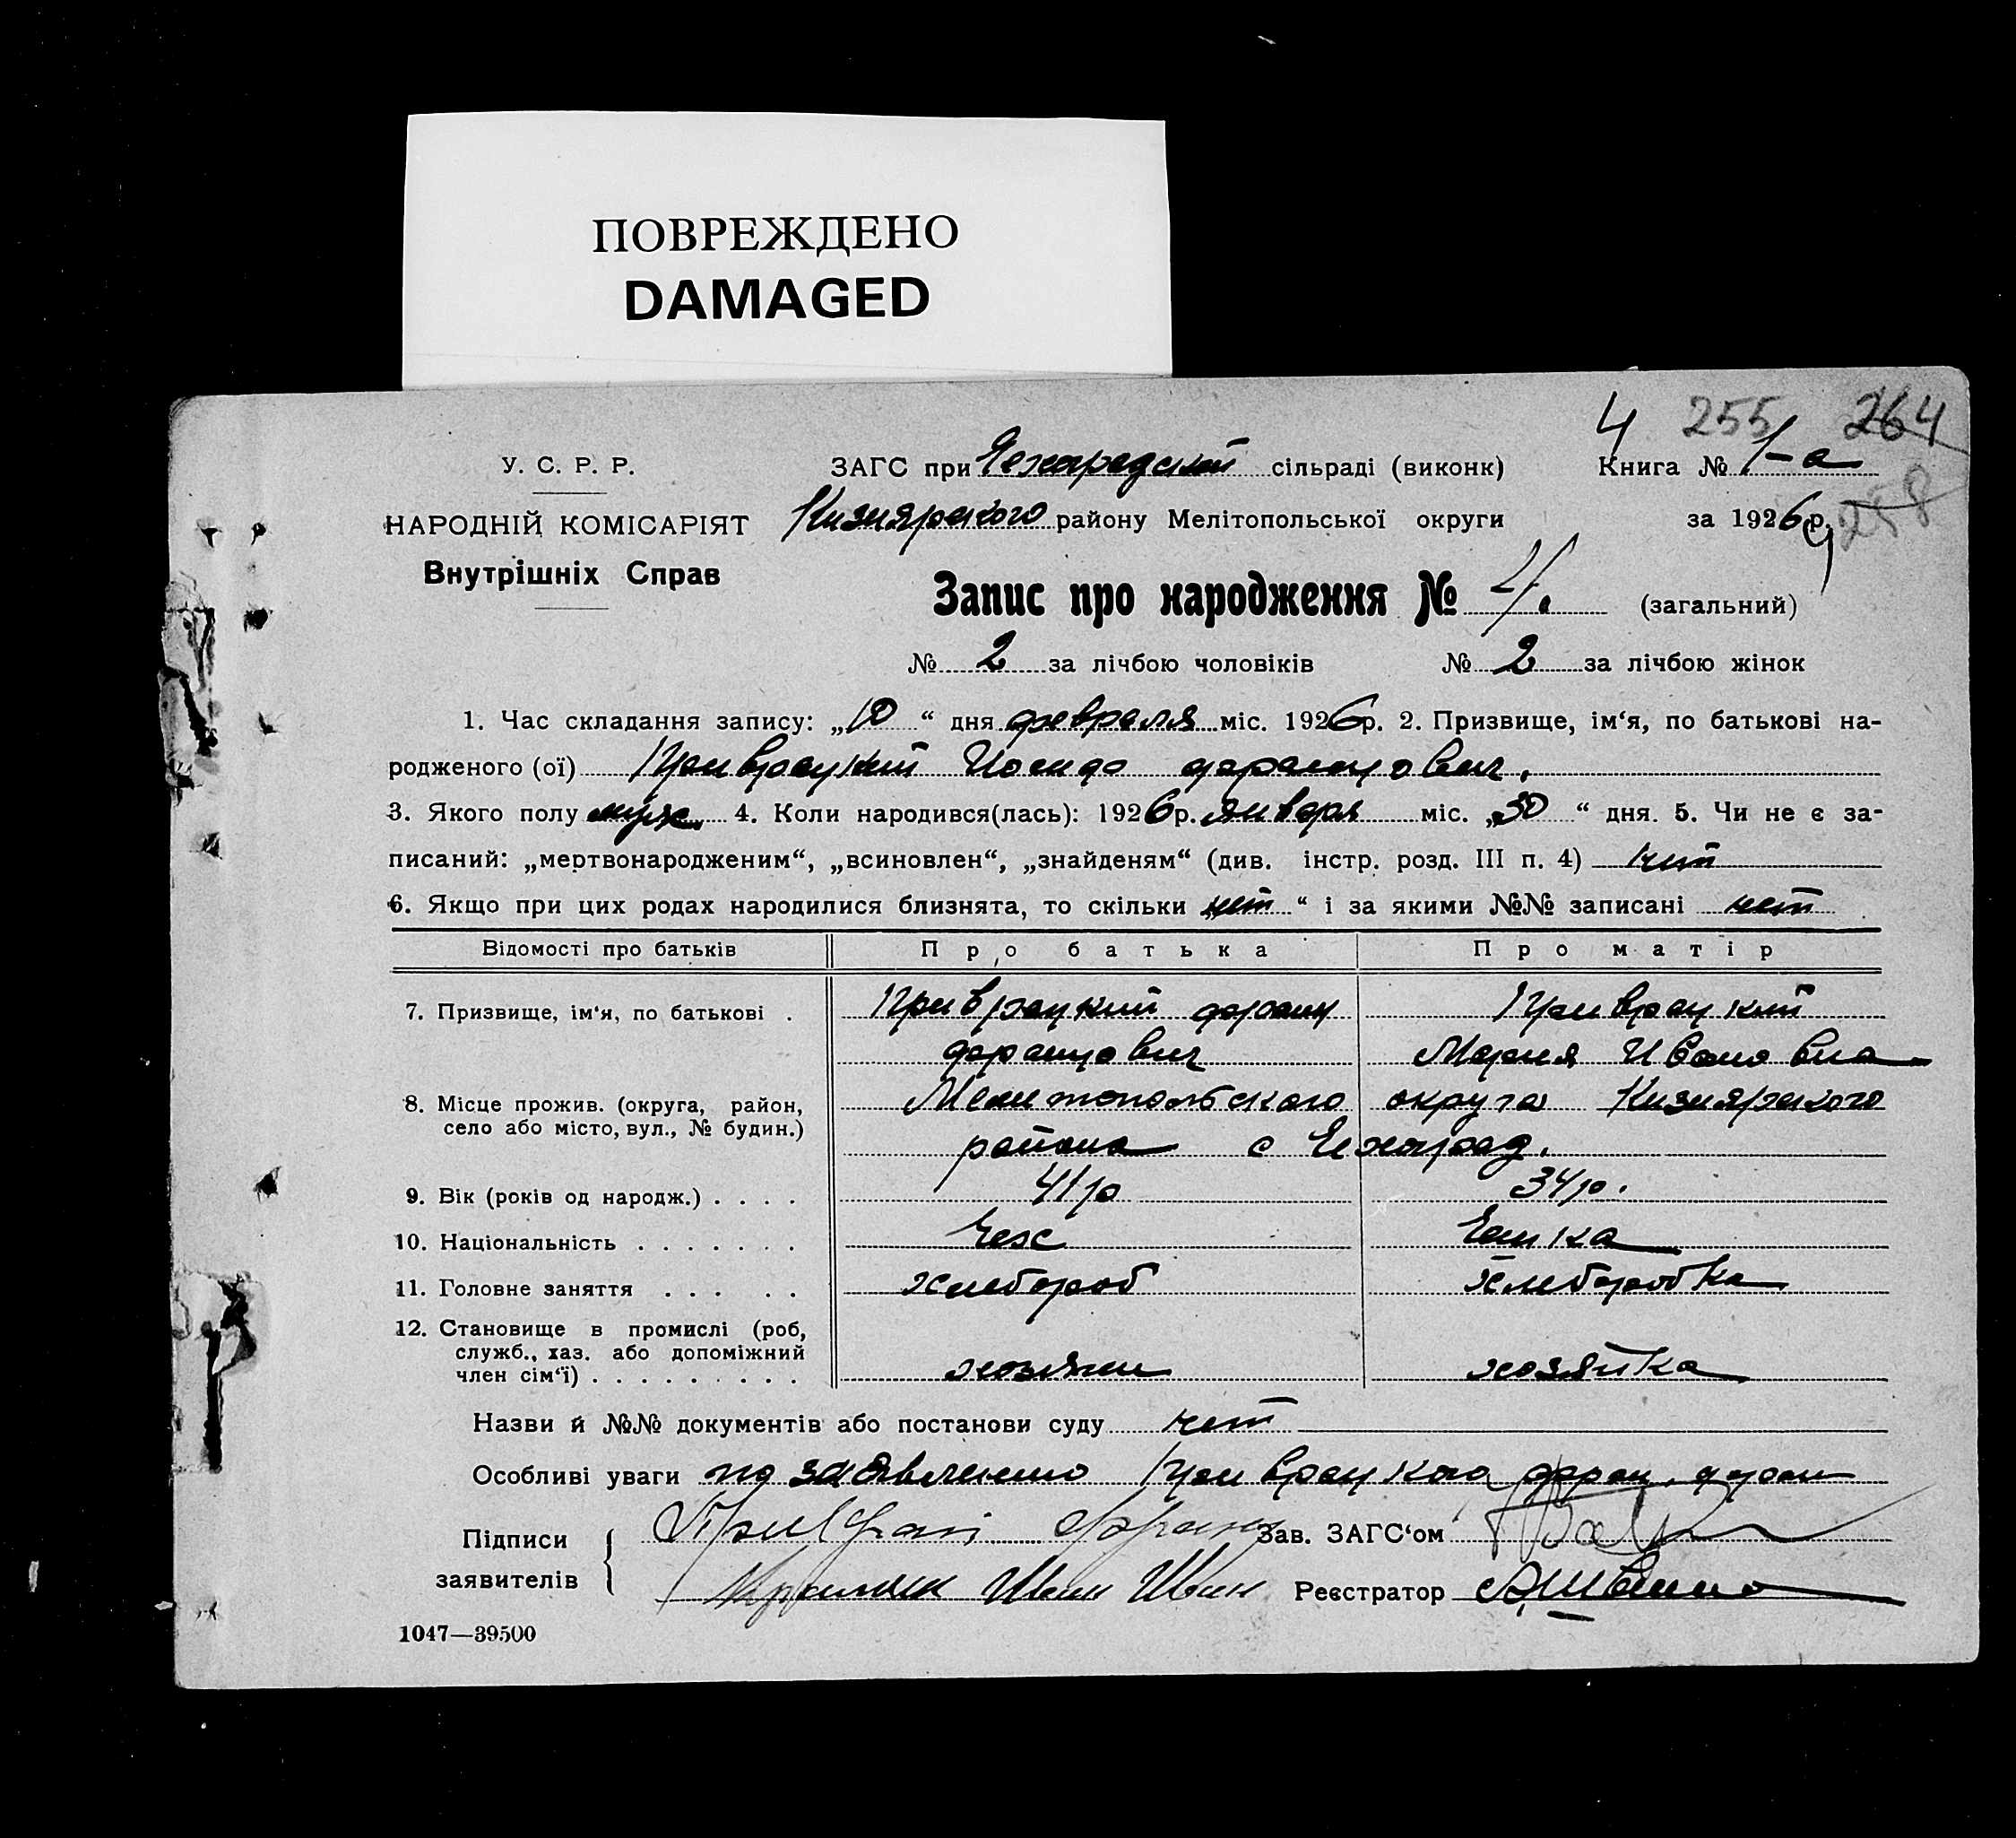 ПОВРЕЖДЕНО
DAMAGED
4 255 264
У. С. Р. Р.
ЗАГС при Чехоградский сільраді (виконк)
Книга № 1-а
НАРОДНІЙ КОМІСАРІЯТ
Кизиярского району Мелітопольської округи
за 1926 р.
258
Внутрішніх Справ
Запис про народження № 4. (загальний)
№ 2 за лічбою чоловіків № 2 за лічбою жінок
1. Час складання запису: „10“ дня февраля міс. 1926 р. 2. Призвище, імʻя, по батькові на-
родженого (ої) Приврацкий Иосиф францович.
3. Якого полу муж. 4. Коли народився(лась): 1926 р. января міс. „30“ дня. 5. Чи не є за-
писаний: „мертвонародженим“, „всиновлен“, „знайденям“ (див. інстр. розд. III п. 4) нет
6. Якщо при цих родах народилися близнята, то скільки „нет“ і за якими №№ записані нет
Відомості про батьків Про батька Про матір
7. Призвище, імʻя, по батькові . Приврацкий франц Приврацкий
францович Мария Ивановна
8. Місце прожив. (округа, район, Мелитопольского округа Кизиярского
село або місто, вул., № будин.) района с Чехоград.
9. Вік (років од народж.) . . . . 41 р 34 р.
10. Національність . . . . . . . Чех Чешка
11. Головне заняття . . . . . хлебороб хлеборобка
12. Становище в промислі (роб,
служб., хаз. або допоміжний
член сімʻї) . . . . . . . . . хозяин хозяйка
Назви й №№ документів або постанови суду нет
Особливі уваги по заявлению Приврацкого франц. фран
Підписи
заявителів
Франц
Зав. ЗАГСʻом
Иван Иван
Реєстратор
1047—39500